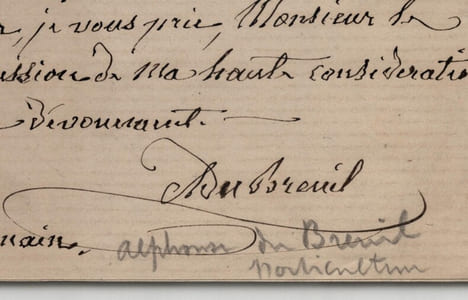 , je vous prie, Monsieur le
ssion de ma haute consideratio
dévouement.
Du Breuil
main.
alphonse du Breuil
horticulteur